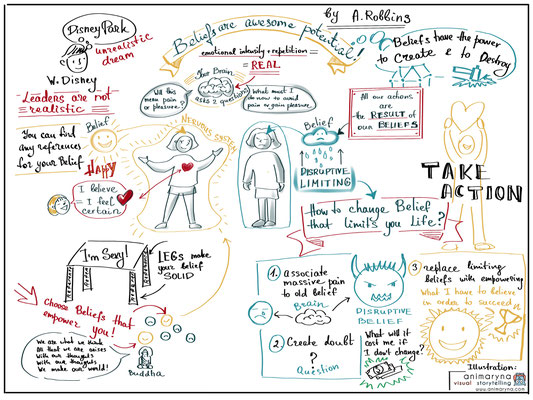 Disney Park
unrealistic
dream
W. Disney
Leaders are not
realistic
Beliefs are awesome potential!
by A. Robbins
emotional intensity + repetition =
= REAL
Your Brain
asks 2 questions
Will this
mean pain
or pleasure?
What must I
do now to avoid
pain or gain pleasure
Beliefs have the power
to Create & to Destroy
All our actions
are the RESULT of
our BELIEFS
You can find
any references
for your Belief
Belief
HAPPY
I believe =
= I feel
certain
NERVOUS SYSTEM
Belief
DISRUPTIVE
LIMITING
TAKE
ACTION
How to change Belief
that limit's you Life?
I'm Sexy!
LEGs make
your belief
SOLID
Choose Beliefs that
empower you!
We are what we think
All that we are arises
With our thoughts
With our thoughts
We make our world!
Buddha
1. associate
massive pain
to old belief
Brain
DISRUPTIVE
BELIEF
2 Create doubt
?
Question
What will it
cost me if
I don't change?
3 replace limiting
Beliefs with empowering
What I have to believe
in order to succeed
Illustration:
animaryna
visual storytelling
www.animaryna.com